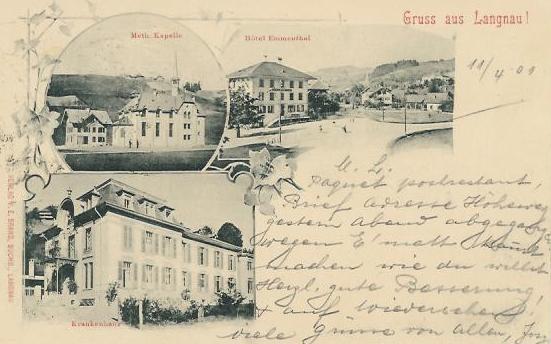 Gruss aus Langnau!
Meth. Kapelle
Hôtel Emmenthal
11/4 01
M. L.
Paquet postrestant,
Brief adresse Höheweg
gestern abend
wegen E'matt kannst
machen wie du willst
Herzl. gute Besserung!
& auf wiedersehen!
viele Grüsse von allen,
Krankenhaus